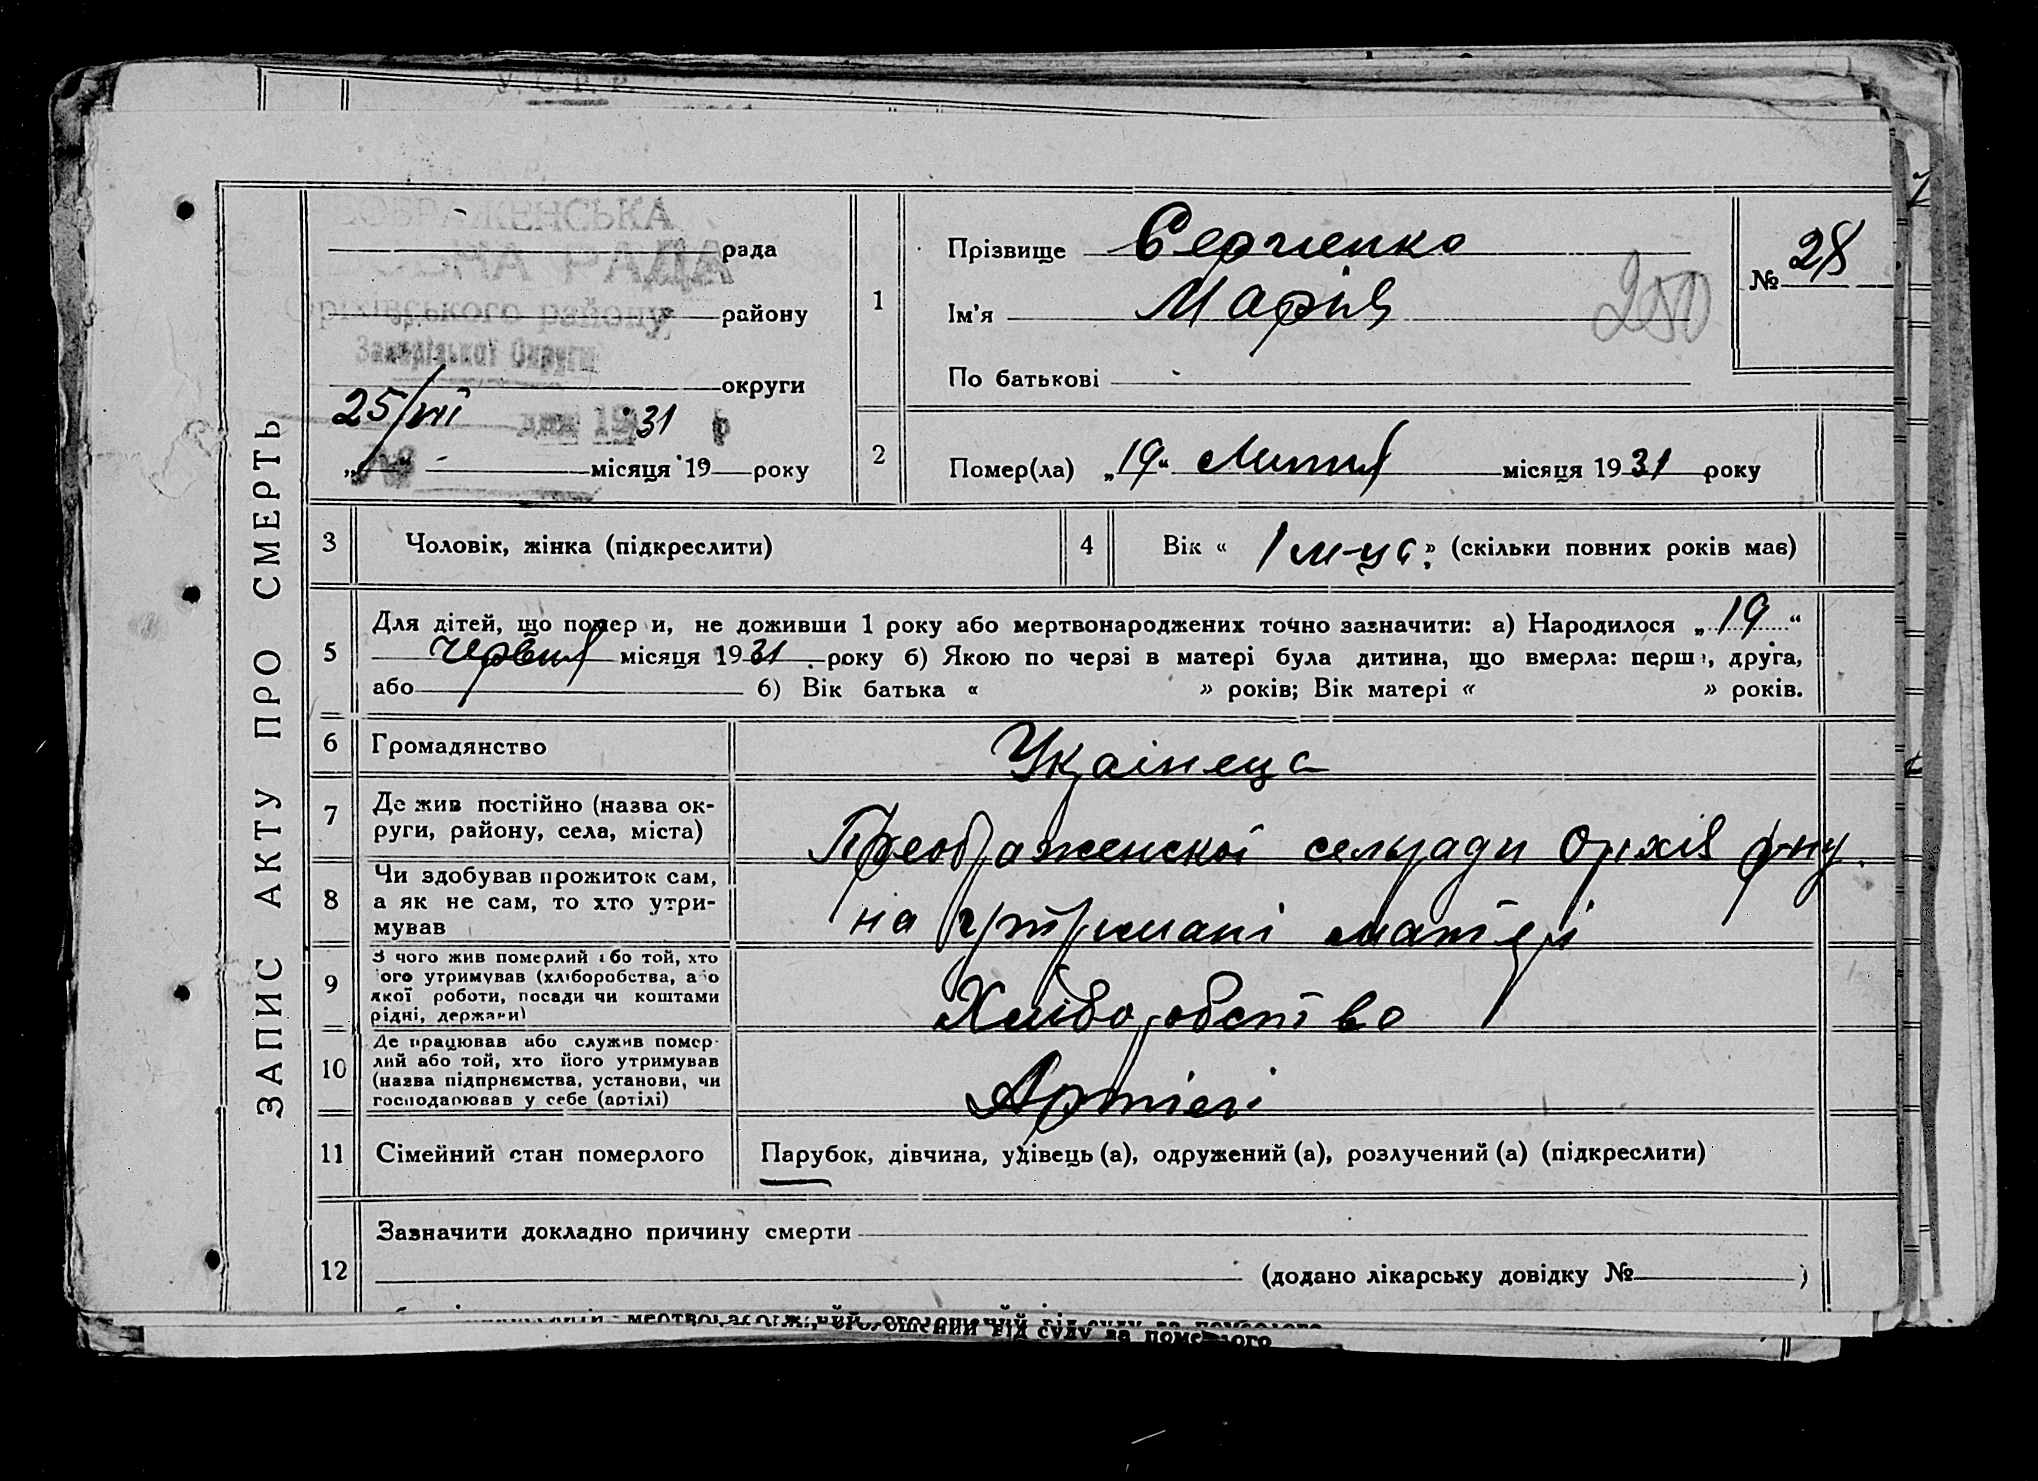 У. С. Р. Р.
ЗАПИС АКТУ ПРО СМЕРТЬ
рада
району
Запорізької Округи
округи
25/VII 1931 р
„ “ місяця 19 року
1
Прізвище Сергіенко
Ім'я Марія
По батькові
250
№ 28
2
Помер(ла) „19“ Липня місяця 1931 року
3 Чоловік, жінка (підкреслити)
4 Вік « 1 м-ць » (скільки повних років мав)
5 Для дітей, що помер и, не доживши 1 року або мертвонароджених точно зазначити: а) Народилося „19“
Червня місяця 1931 року б) Якою по черзі в матері була дитина, що вмерла: перш , друга,
або б) Вік батька « » років; Вік матері « » років.
6 Громадянство Украінець
7 Де жив постійно (назва ок-
руги, району, села, міста) Преображенскоі сельради Оріхів р-ну.
8 Чи здобував прожиток сам,
а як не сам, то хто утри-
мував на утримані матері
9 З чого жив померлий або той, хто
його утримував (хліборобства, або
якої роботи, посади чи коштами
рідні, держави) Хліборобство
10 Де працював або служив помер-
лий або той, хто його утримував
(назва підприємства, установи, чи
господарював у себе (артілі) Артілі
11 Сімейний стан померлого Парубок, дівчина, удівець (а), одружений (а), розлучений (а) (підкреслити)
12 Зазначити докладно причину смерти
(додано лікарську довідку № )